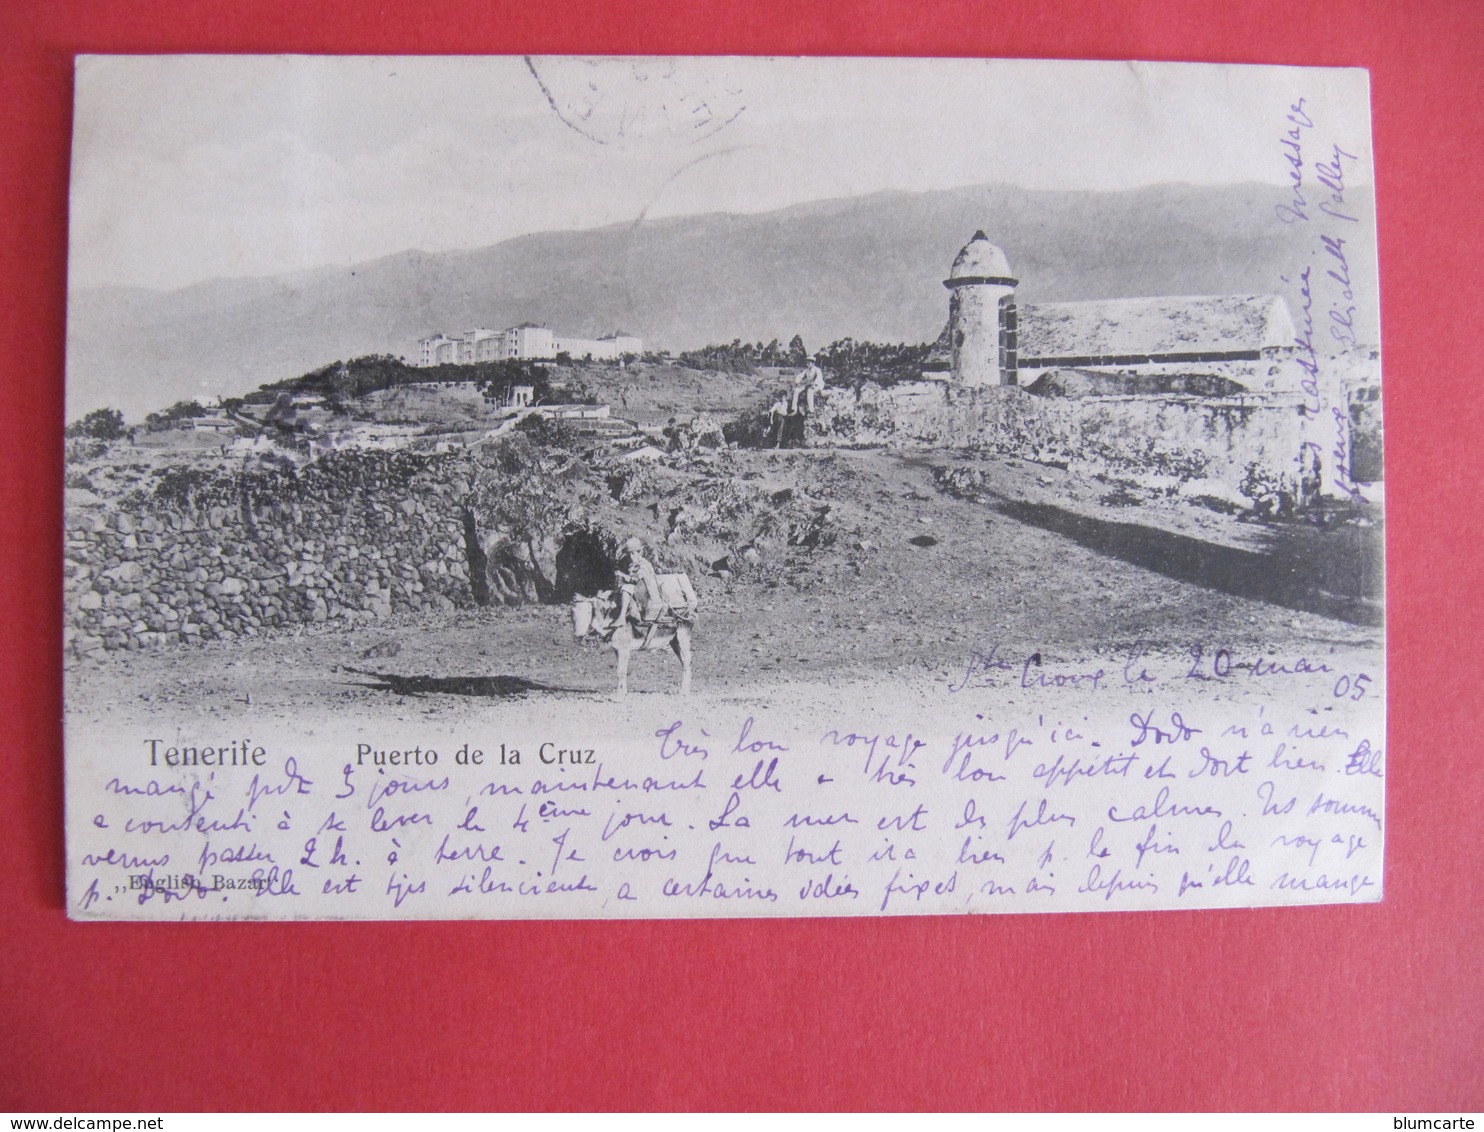 Ste Croix le 20 mai
05
Tenerife Puerto de la Cruz
Très bon voyage jusqu'ici. Dodo n'a rien
mangé pdt 3 jours, maintenant elle a très bon appétit et dort bien. Elle
a consenti à se lever le 4ème jour. La mer est de plus calmes. Ns sommes
venus passer 2 h. à terre. Je crois que tout ira bien p. la fin du voyage
p. Dodo. Elle est tjs silencieuse, a certaines idées fixes, mais depuis qu'elle mange
„English Bazar"
calmée. Messages